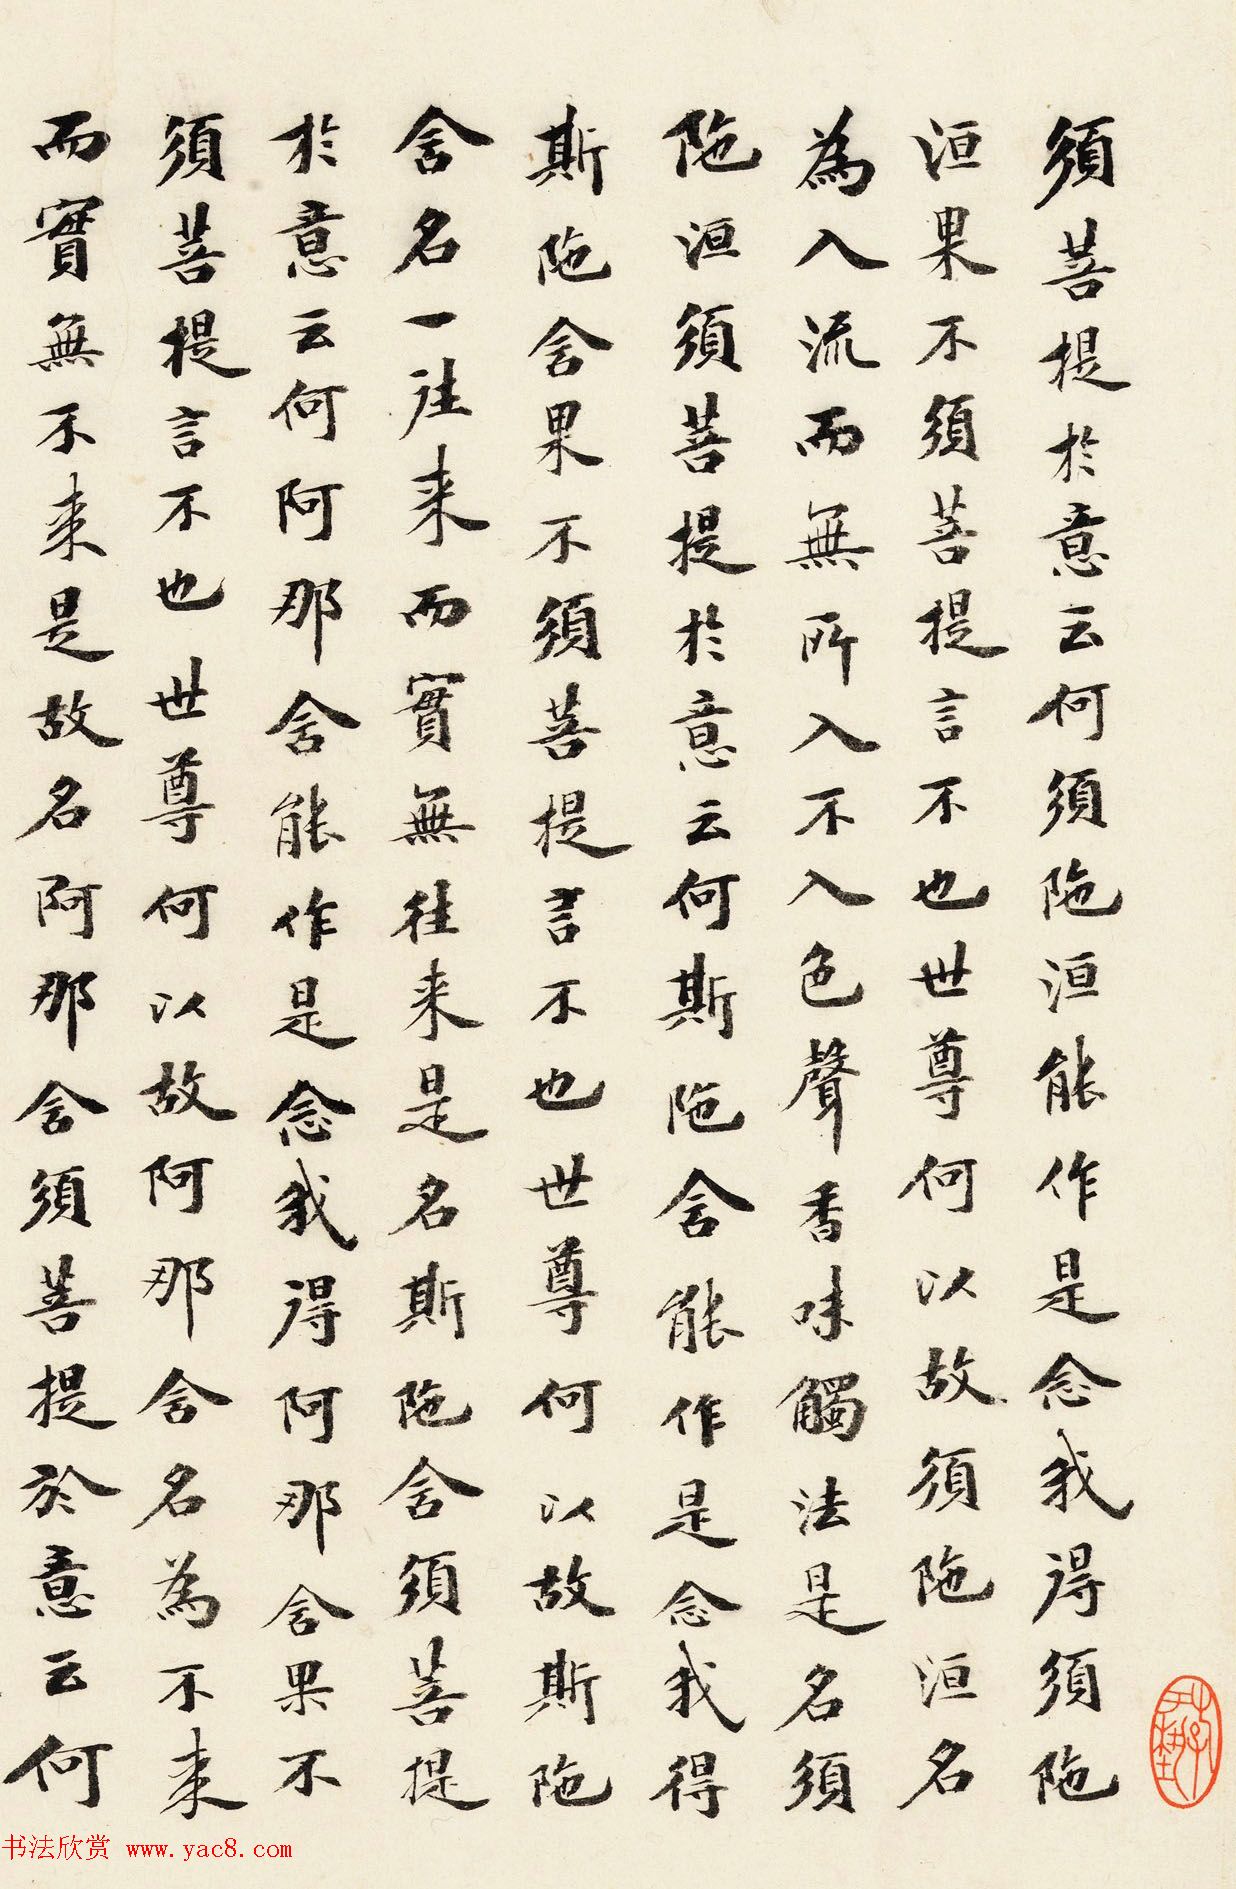 須菩提於意云何須陁洹能作是念我得須陁
洹果不須菩提言不也世尊何以故須陁洹名
為入流而無所入不入色聲香味觸法是名須
陁洹須菩提於意云何斯陁含能作是念我得
斯陁含果不須菩提言不也世尊何以故斯陁
含名一往来而實無往来是名斯陁含須菩提
於意云何阿那含能作是念我得阿那含果不
須菩提言不也世尊何以故阿那含名為不来
而實無不来是故名阿那含須菩提於意云何
书法欣赏 www.yac8.com